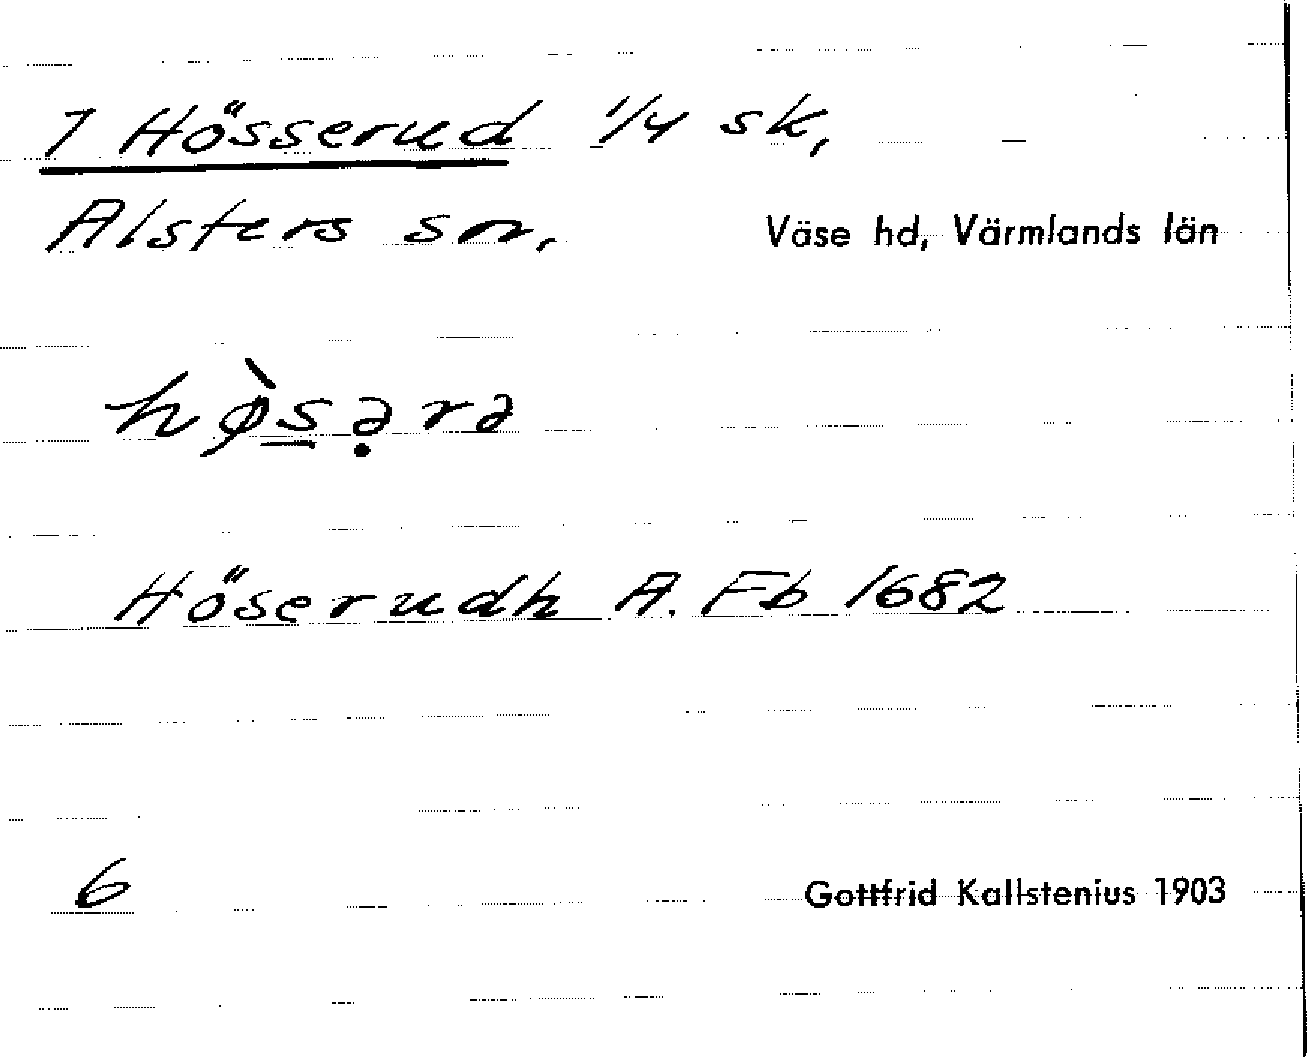 7 Hösserud 1/4 sk,
Alsters sn, Väse hd, Värmlands län
hø̀s̲ə̣rə
Höserudh A. Fb 1682
6 Gottfrid Kallstenius 1903